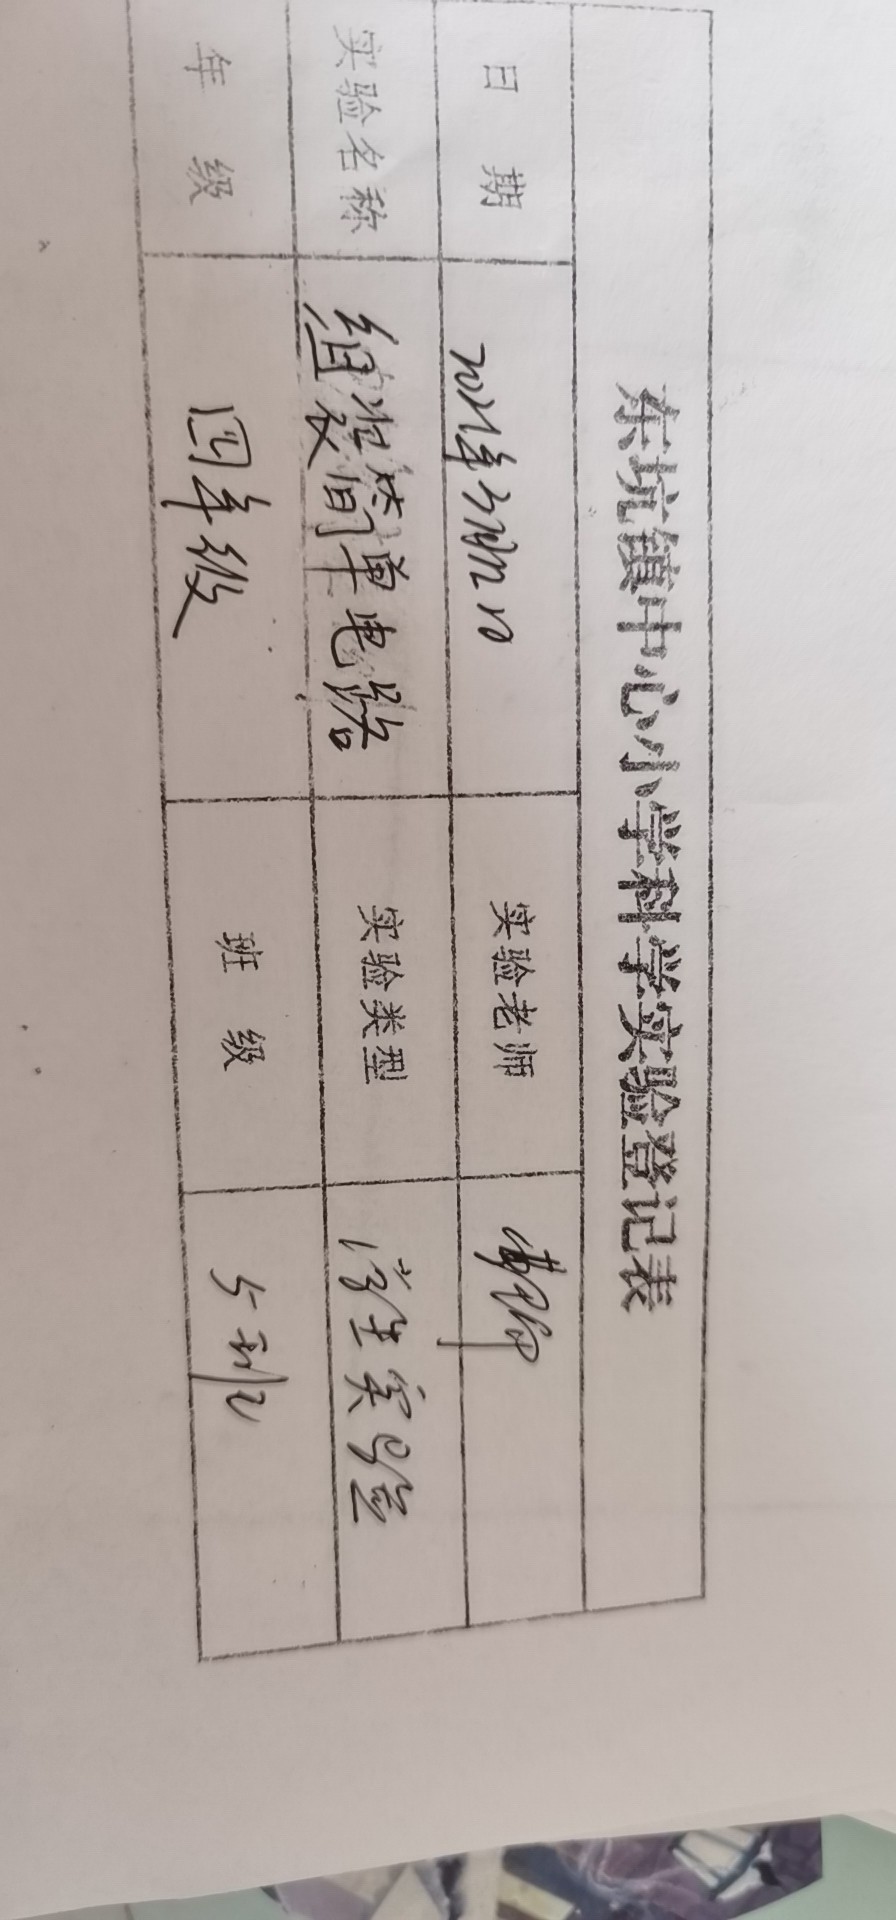 东坑镇中心小学科学实验登记表
日 期 2021年 实验老师
实验名称 组装简单电路 实验类型 学生实验
年 级 四年级 班 级 5班